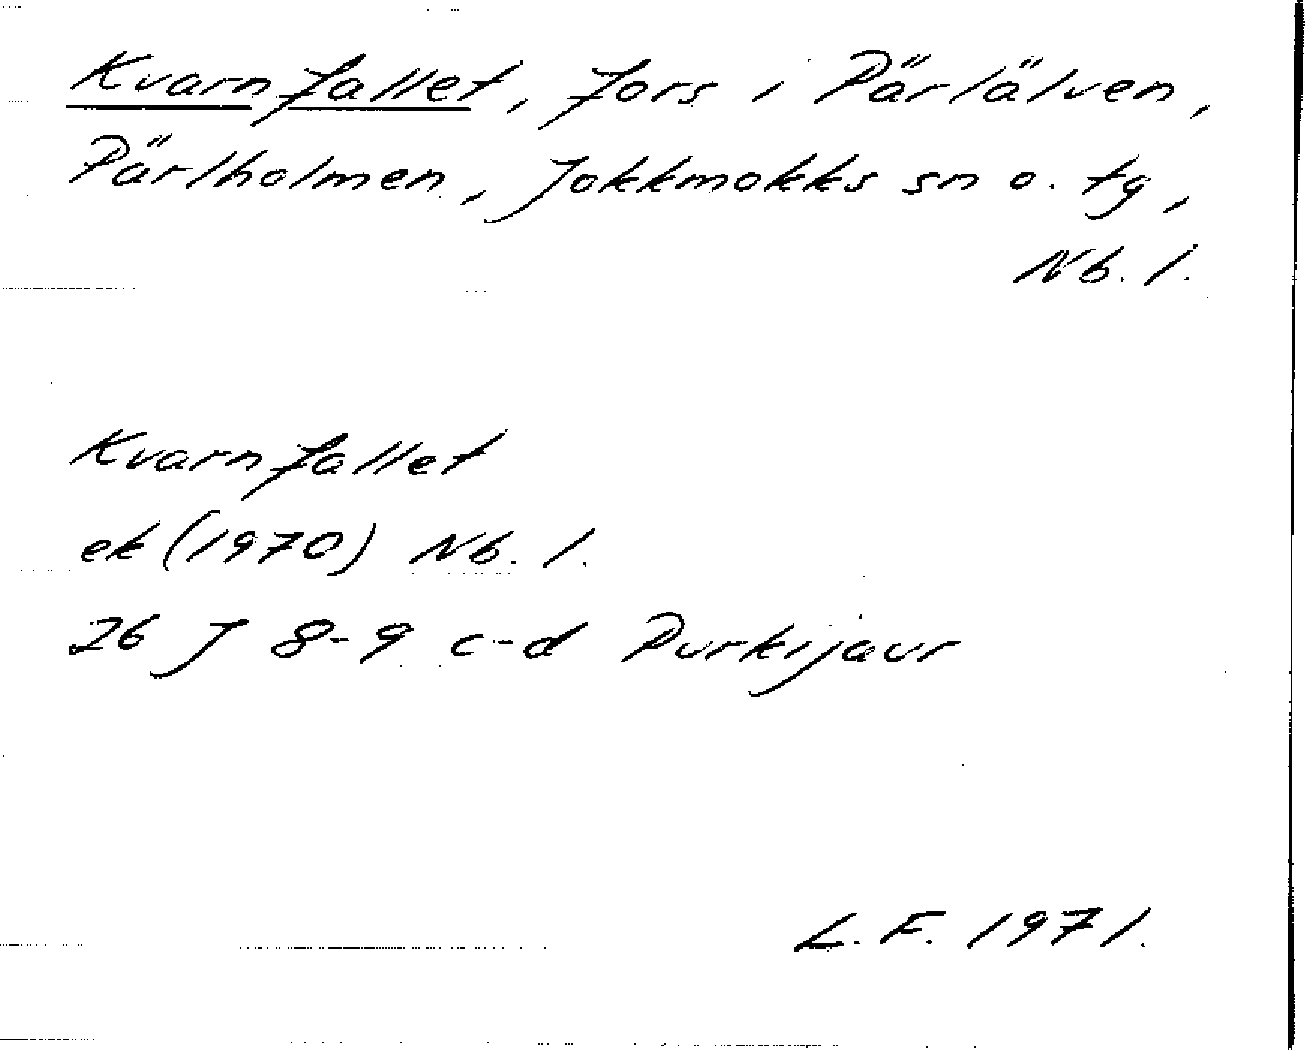 Kvarnfallet, fors i Pärlälven,
Pärlholmen, Jokkmokks sn o. tg,
Nb. l.
Kvarnfallet
ek (1970) Nb. l.
26 J 8-9 c-d Purkijaur
L. F. 1971.